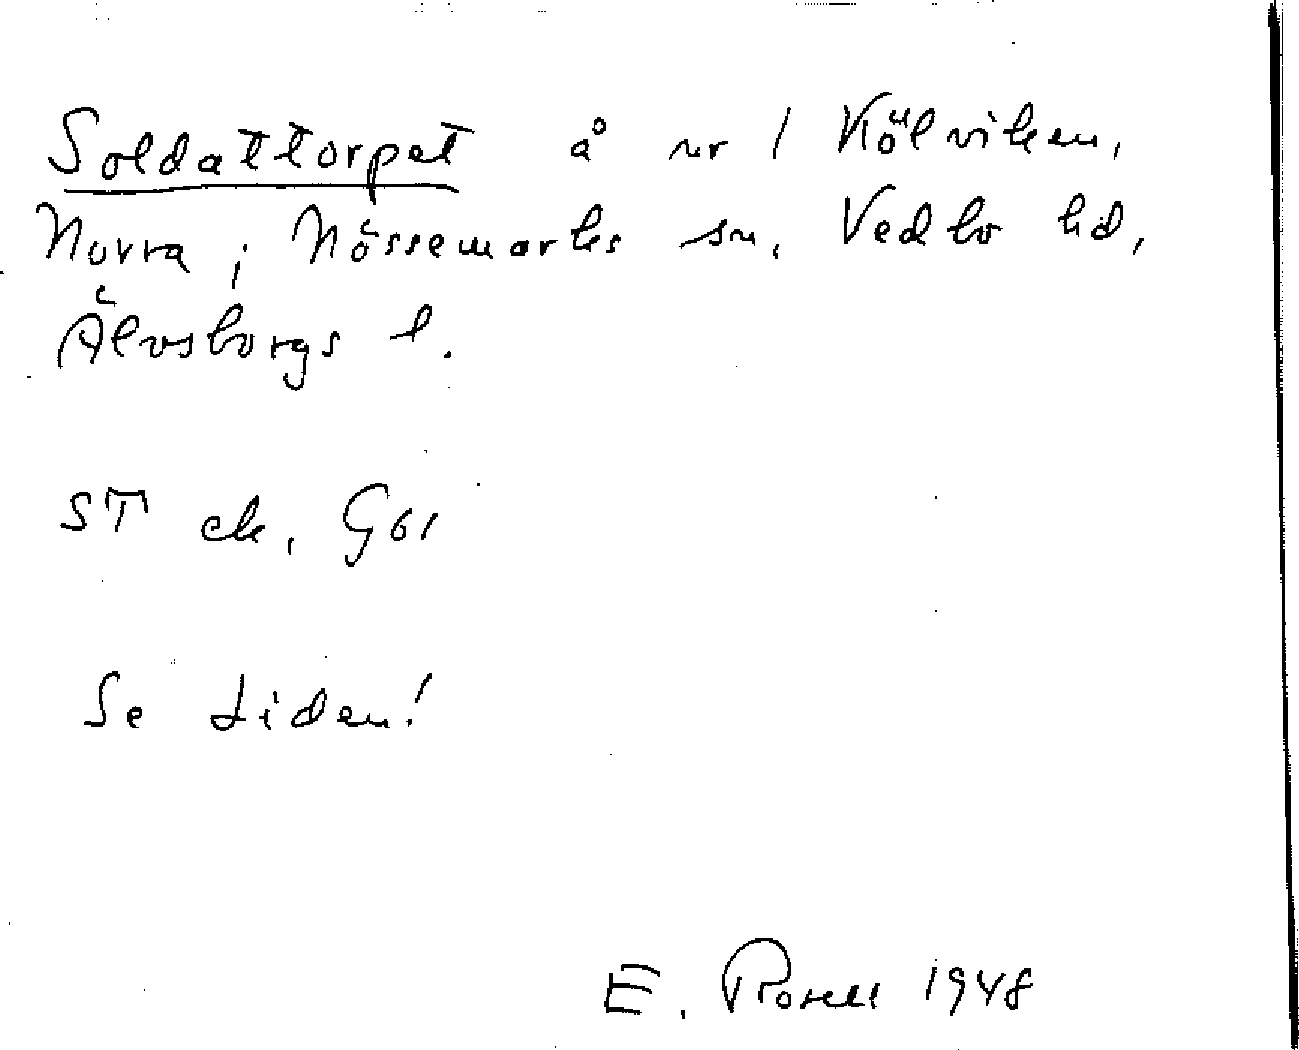 Soldattorpet å nr 1 Kölviken,
Norra i Nössemarks sn, Vedbo hd,
Älvsborgs l.
ST ek. G61
Se Liden!
E. Rosell 1948